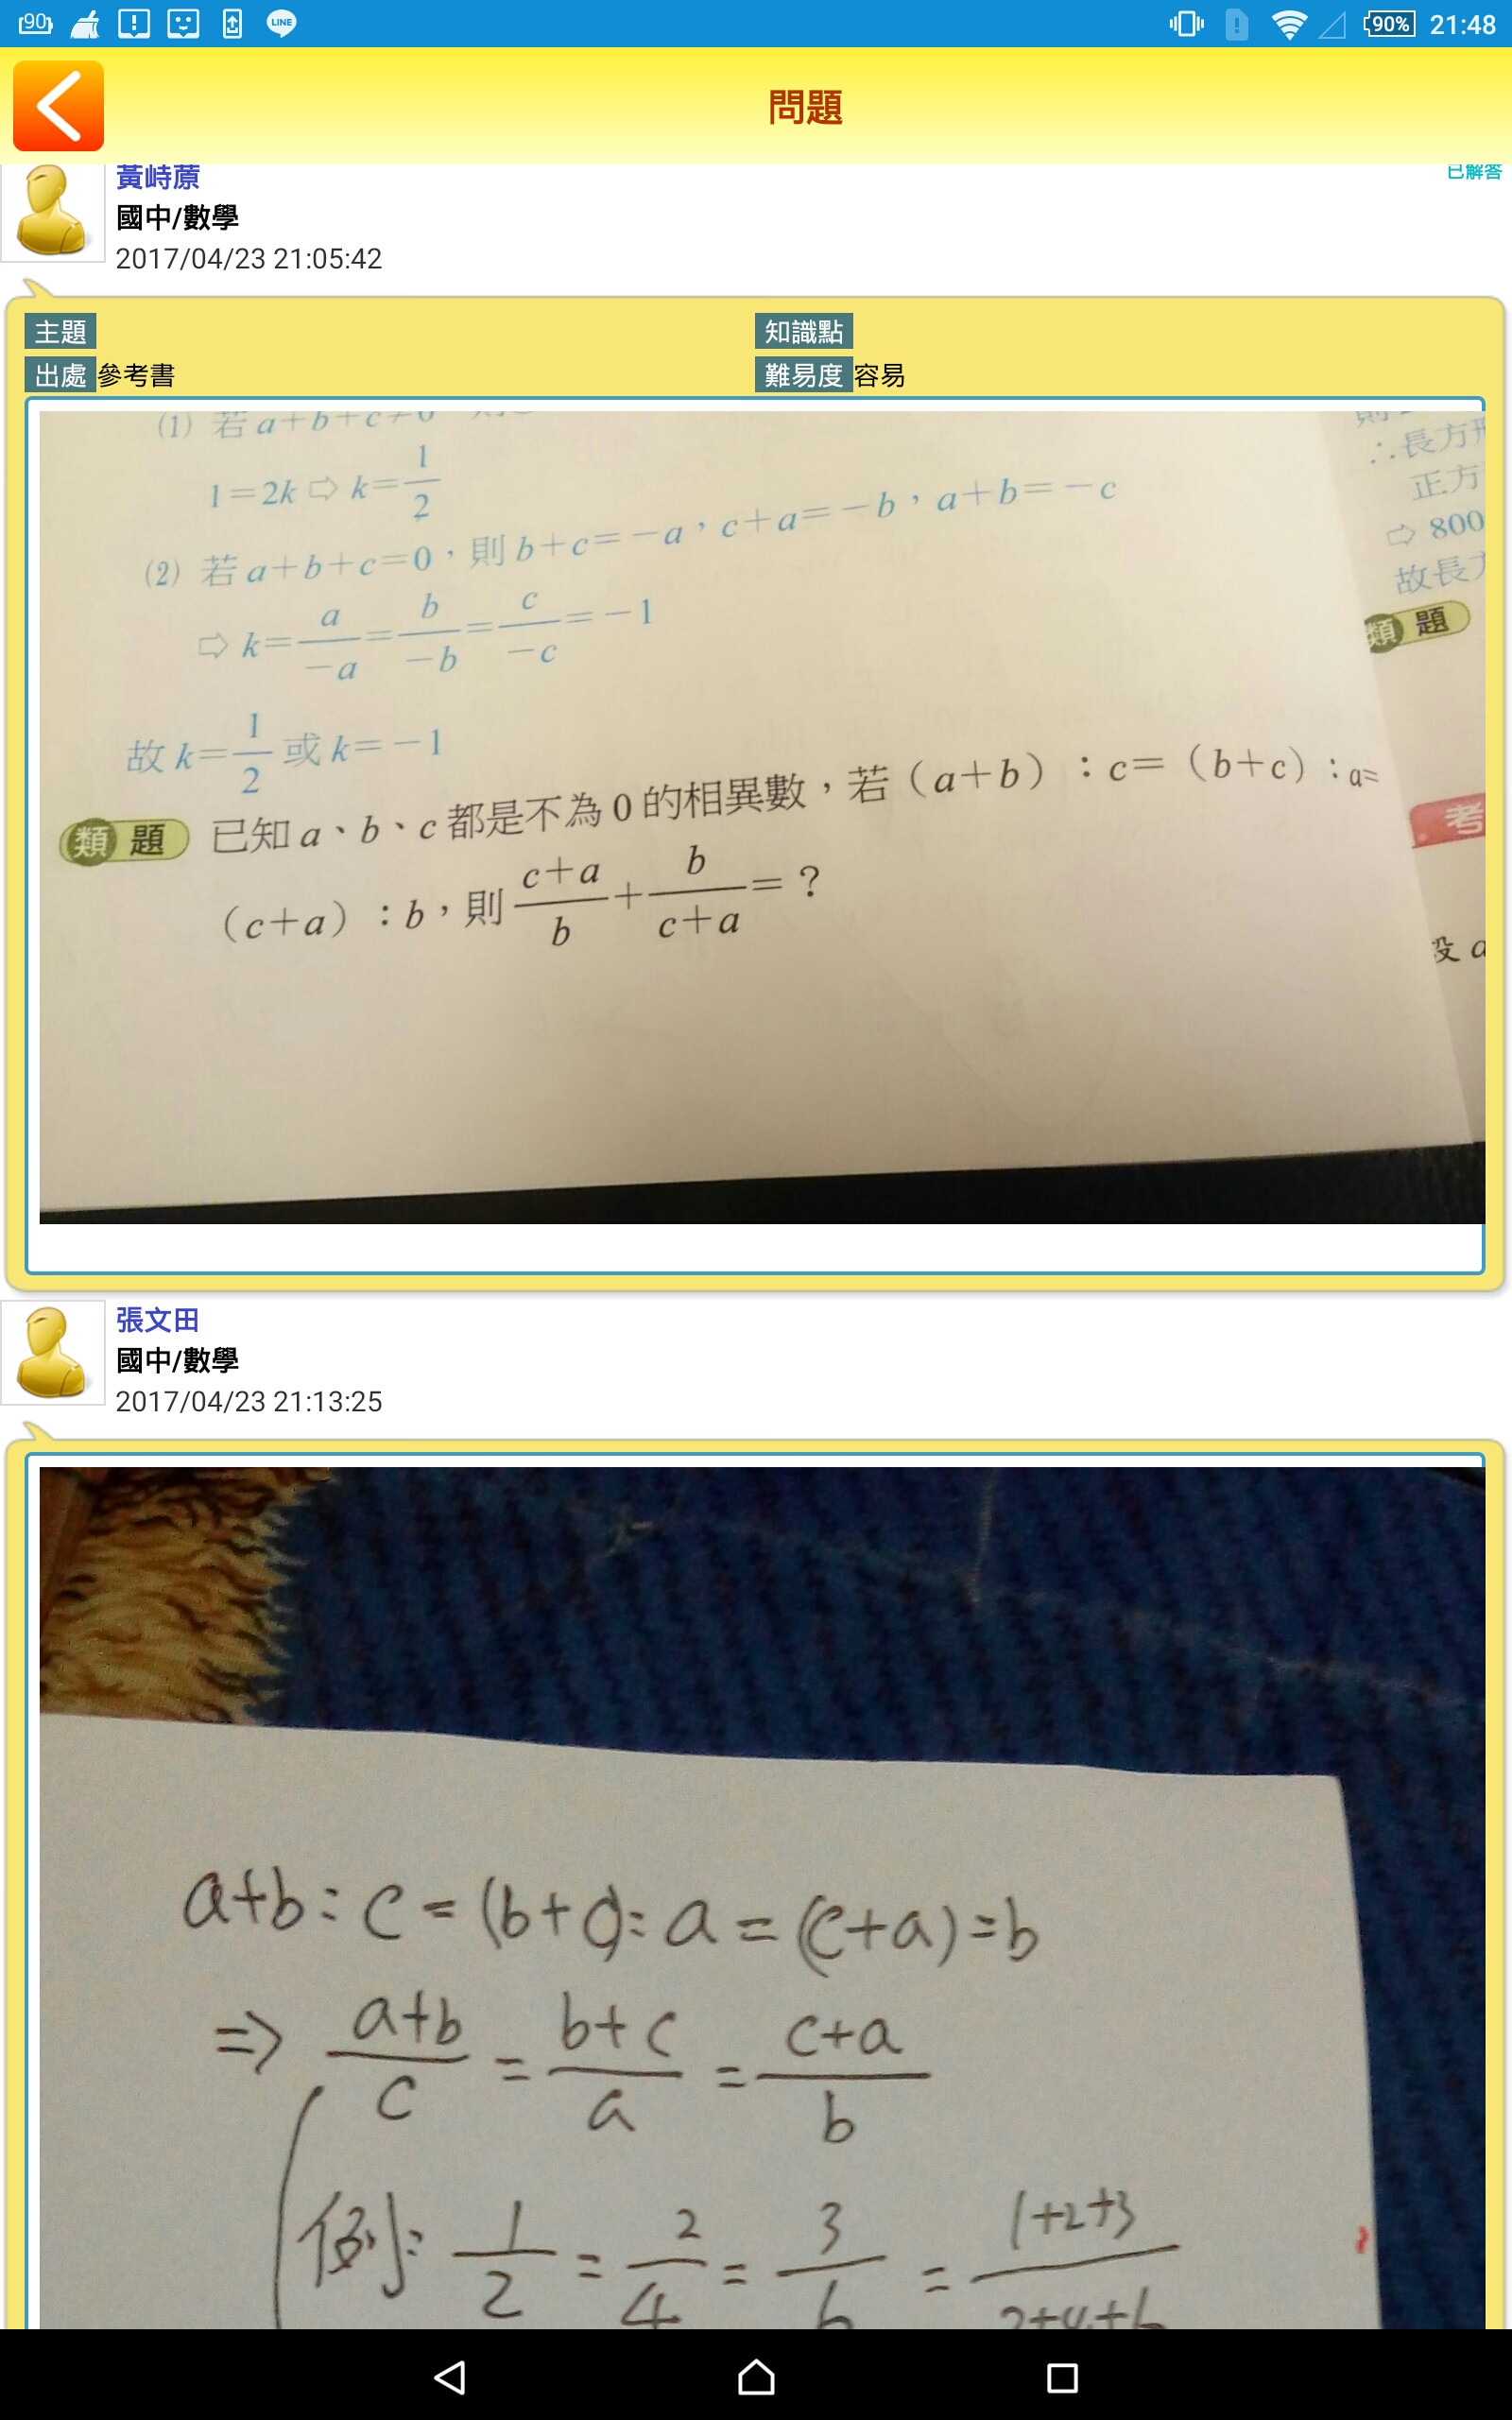 90
LINE
90%
21:48
問題
黃峙蒝
已解答
國中/數學
2017/04/23 21:05:42
主題
知識點
出處 參考書
難易度 容易
(1) 若 a+b+c≠0
1=2k ⇨ k=1/2
(2) 若 a+b+c=0,則 b+c=-a,c+a=-b,a+b=-c
⇨ k=a/-a=b/-b=c/-c=-1
故 k=1/2 或 k=-1
類題 已知 a、b、c 都是不為 0 的相異數,若(a+b):c=(b+c):a=
(c+a):b,則 c+a/b + b/c+a = ?
∴長方形
正方
⇨ 800
故長方
類題
考
設 a
張文田
國中/數學
2017/04/23 21:13:25
a+b:c=(b+c):a=(c+a)=b
=> a+b/c = b+c/a = c+a/b
例: 1/2 = 2/4 = 3/6 = 1+2+3/2+4+6